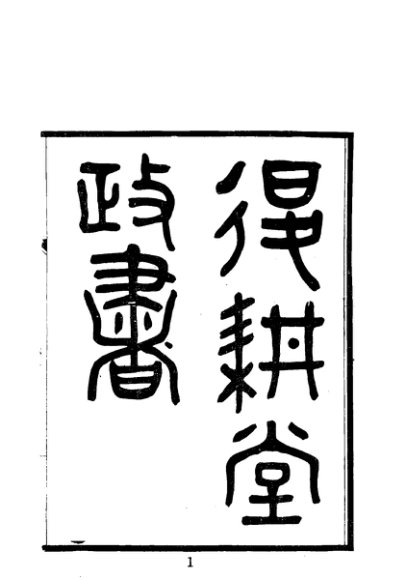 退耕堂
政書
1